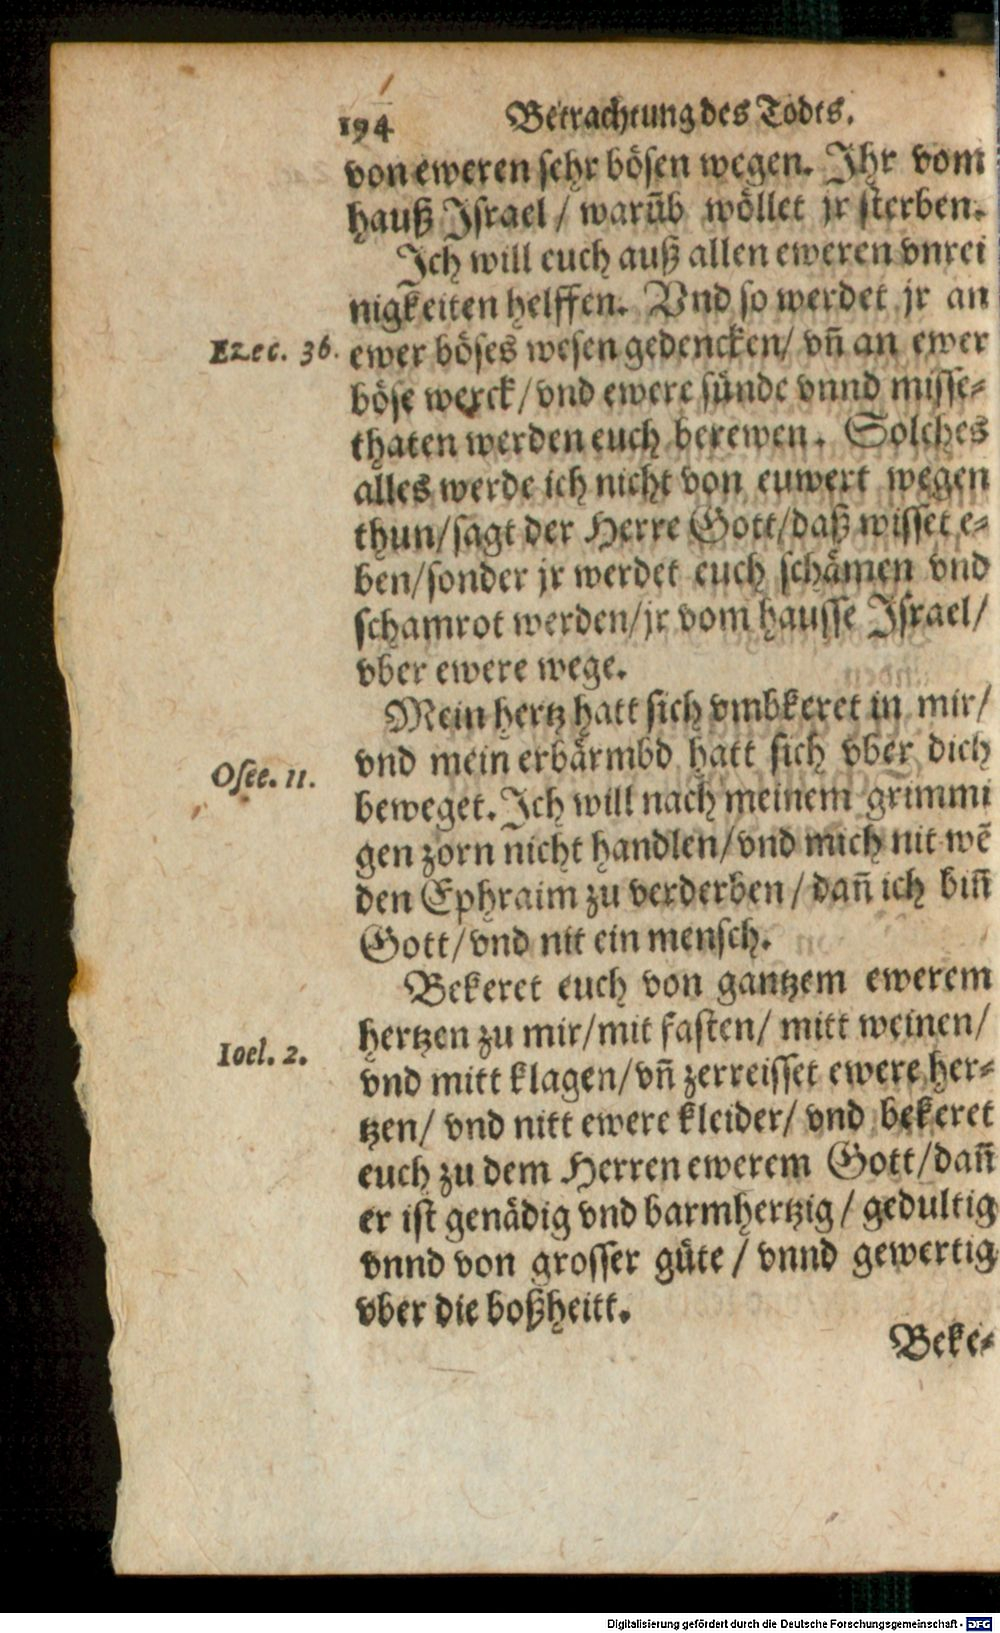 194 Betrachtung des Todts.
von eweren sehr bösen wegen. Ihr vom
hauß Israel / warũb wöllet jr sterben.
Ich will euch auß allen eweren vnrei
nigkeiten helffen. Vnd so werdet jr an
Ezec. 36. ewer böses wesen gedencken/ vñ an ewer
böse werck/vnd ewere sünde vnnd misse-
thaten werden euch berewen. Solches
alles werde ich nicht von euwert wegen
thun/sagt der Herre Gott/daß wisset e-
ben/sonder jr werdet euch schämen vnd
schamrot werden/jr vom hausse Israel/
vber ewere wege.
Mein hertz hatt sich vmbkeret in mir/
vnd mein erbärmbd hatt sich vber dich
Osee. 11.
beweget. Ich will nach meinem grimmi
gen zorn nicht handlen/vnd mich nit wẽ
den Ephraim zu verderben / dañ ich biñ
Gott/vnd nit ein mensch.
Bekeret euch von gantzem ewerem
hertzen zu mir/mit fasten/ mitt weinen/
Ioel. 2.
vnd mitt klagen/vñ zerreisset ewere her-
tzen/ vnd nitt ewere kleider/ vnd bekeret
euch zu dem Herren ewerem Gott/dañ
er ist genädig vnd barmhertzig / gedultig
vnnd von grosser güte / vnnd gewertig
vber die boßheitt.
Beke-
Digitalisierung gefördert durch die Deutsche Forschungsgemeinschaft - DFG